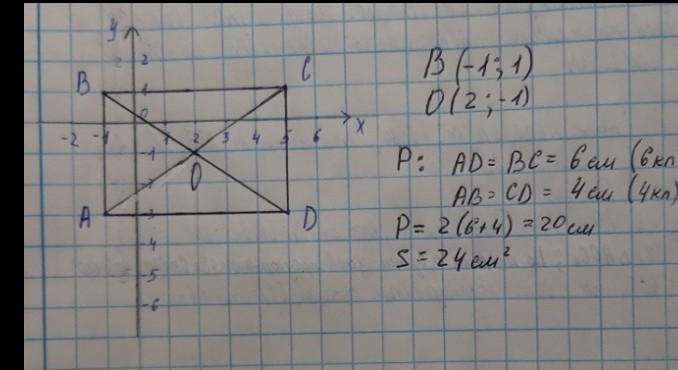 y
2
B
1
C
0
-2
-1
1
2
3
4
5
6
x
-1
O
-2
A
-3
D
-4
-5
-6
B(-1; 1)
O(2; -1)
P: AD = BC = 6 см (6 кл
AB = CD = 4 см (4 кл)
P = 2(6+4) = 20 см
S = 24 см²